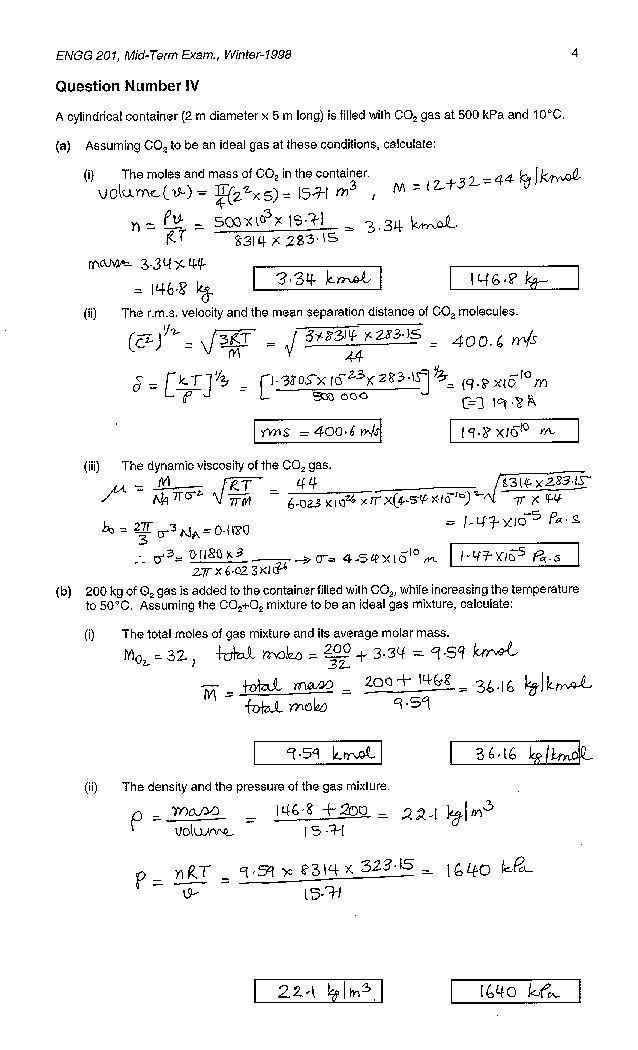 ENGG 201, Mid-Term Exam., Winter-1998 4
Question Number IV
A cylindrical container (2 m diameter x 5 m long) is filled with CO₂ gas at 500 kPa and 10°C.
(a) Assuming CO₂ to be an ideal gas at these conditions, calculate:
(i) The moles and mass of CO₂ in the container.
volume (v) = π/4 (2² x 5) = 15.71 m³ , M = 12+32 = 44 kg/kmol
n = Pv/RT = 500x10³ x 15.71 / 8314 x 283.15 = 3.34 kmol.
mass = 3.34 x 44
= 146.8 kg
3.34 kmol 146.8 kg
(ii) The r.m.s. velocity and the mean separation distance of CO₂ molecules.
(c̅²)^1/2 = √3RT/M = √3x8314 x 283.15 / 44 = 400.6 m/s
δ = [kT/P]^1/3 = [1.3805 x 10^-23 x 283.15 / 500 000]^1/3 = 19.8 x10^-10 m
[=] 19.8 Å
rms = 400.6 m/s 19.8 x10^-10 m
(iii) The dynamic viscosity of the CO₂ gas.
μ = M / N_A π σ² √RT/πM = 44 / 6.023 x 10^26 x π x (4.54 x 10^-10)² √8314 x 283.15 / π x 44
b₀ = 2π/3 σ³ N_A = 0.1180 = 1.47 x 10^-5 Pa.s
∴ σ³ = 0.1180 x 3 / 2π x 6.023x10^26 → σ = 4.54 x 10^-10 m 1.47 x 10^-5 Pa.s
(b) 200 kg of O₂ gas is added to the container filled with CO₂, while increasing the temperature
to 50°C. Assuming the CO₂+O₂ mixture to be an ideal gas mixture, calculate:
(i) The total moles of gas mixture and its average molar mass.
M_O₂ = 32, total moles = 200/32 + 3.34 = 9.59 kmol
M̅ = total mass / total moles = 200 + 146.8 / 9.59 = 36.16 kg/kmol
9.59 kmol 36.16 kg/kmol
(ii) The density and the pressure of the gas mixture.
ρ = mass / volume = 146.8 + 200 / 15.71 = 22.1 kg/m³
P = nRT / v = 9.59 x 8314 x 323.15 / 15.71 = 1640 kPa
22.1 kg/m³ 1640 kPa